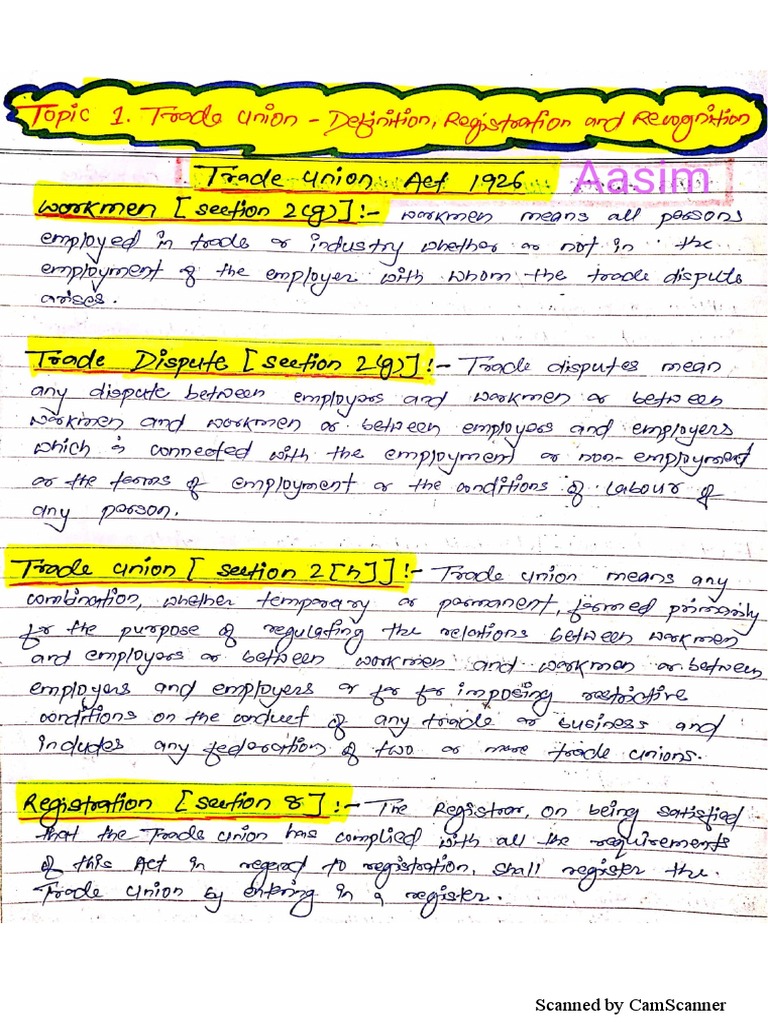 Topic 1. Trade Union - Definition, Registration and Recognition
Trade Union Act 1926
Aasim
Workmen [section 2(g)] :- workmen means all persons
employed in trade or industry whether or not in the
employment of the employer with whom the trade dispute
arises.
Trade Dispute [section 2(g)] :- Trade disputes mean
any dispute between employers and workmen or between
workmen and workmen or between employers and employers
which is connected with the employment or non-employment
or the terms of employment or the conditions of labour of
any person.
Trade Union [section 2[h]] :- Trade union means any
combination, whether temporary or permanent, formed primarily
for the purpose of regulating the relations between workmen
and employers or between workmen and workmen or between
employers and employers or for for imposing restrictive
conditions on the conduct of any trade or business and
includes any federation of two or more trade unions.
Registration [section 8] :- The Registrar, on being satisfied
that the Trade Union has complied with all the requirements
of this Act in regard to registration, shall register the
Trade Union by entering in a register.
Scanned by CamScanner